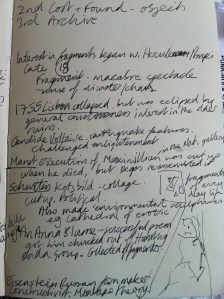 2nd Lost + Found - objects
3rd Archive
Interest in fragments began w.
late 18
Fragment - macabre spectacle
- sense of disaster/chaos
1755 Lisbon collapsed but was eclipsed by
general interest in the
ruins.
Candide Voltaire earthquake features.
challenged enlightenment.
Manet execution of Maximillian was cut up
when he died, but Degas reassembled it
Schwitters bild - collage.
cut up. Political
Also made environmental sculptures
eg Cathedral of erotic
Anna Blume - successful poem
got him chucked out of
dada group. Collected fragments
fragments
of every
day
Eisenstein film maker
Constructivist, Montage Theory.